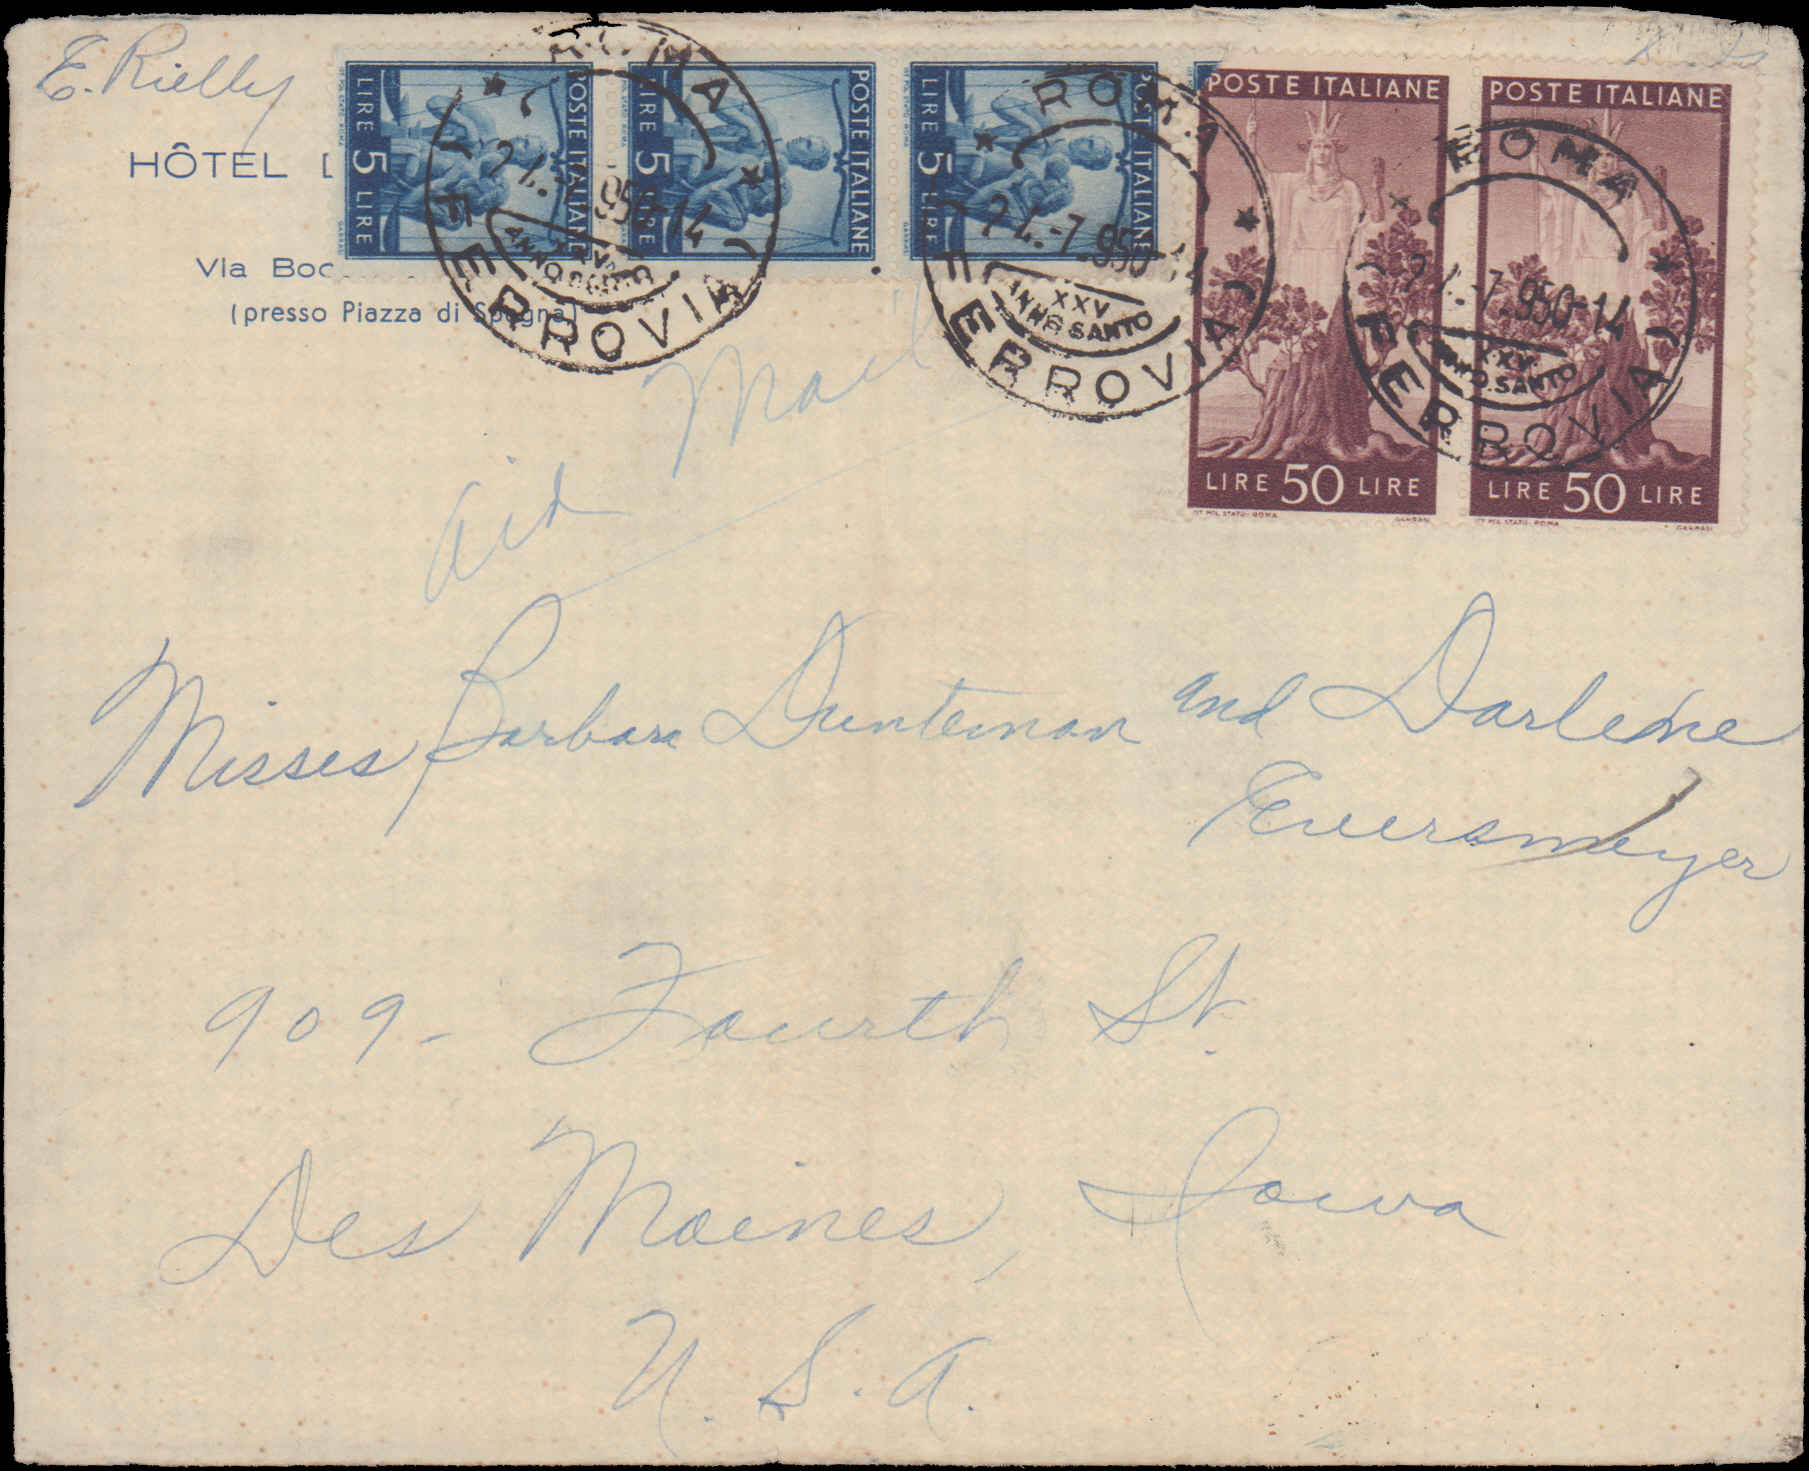 E. Rielly
HÔTEL
Via Boc
(presso Piazza di Spagna)
LIRE 5 LIRE
POSTE ITALIANE
LIRE 5 LIRE
POSTE ITALIANE
LIRE 5 LIRE
POSTE ITALIANE
POSTE ITALIANE
LIRE 50 LIRE
IST. POL. STATO - ROMA
POSTE ITALIANE
LIRE 50 LIRE
IST. POL. STATO - ROMA
ROMA
950-14
ANNO SANTO
FERROVIA
ROMA
-7.950-14
XXV
ANNO SANTO
FERROVIA
ROMA
-7.950-14
XXV
ANNO SANTO
FERROVIA
Air Mail
Misses Barbara Dunteman and Darlene
Eversmeyer
909- Fourth St.
Des Moines, Iowa
U.S.A.